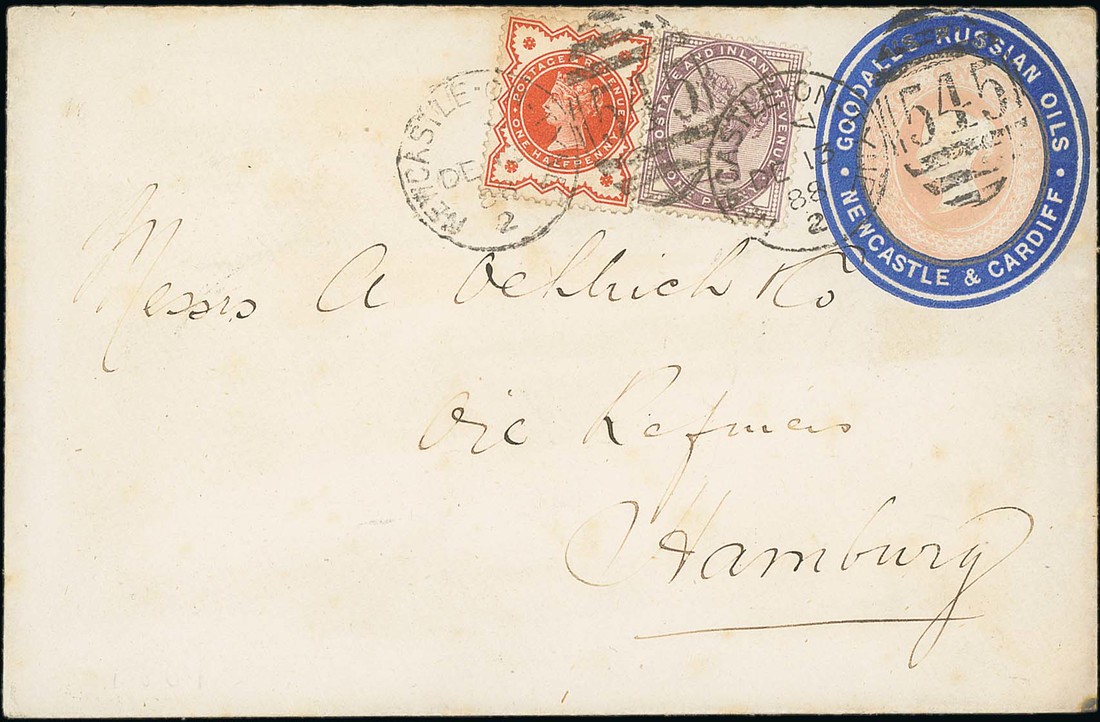 GOODALL'S RUSSIAN OILS
· NEWCASTLE & CARDIFF ·
545
POSTAGE & REVENUE
ONE HALFPENNY
POSTAGE AND INLAND REVENUE
ONE PENNY
NEWCASTLE-O
DE
88
2
CASTLE-ON
DE 13
88
2
Messrs A Oehlrich & Co
Oil Refiners
Hamburg